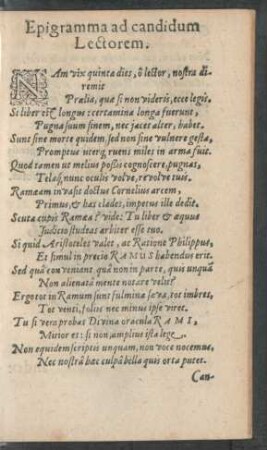 Epigramma ad candidum
Lectorem.
NAm vix quinta dies, ô lector, nostra diremit
Prælia, quæ si non videris, ecce legis.
Si liber est longus: certamina longa fuerunt,
Pugna suum finem, nec jacet alter, habet.
Sunt sine morte quidem, sed non sine vulnere gesta,
Promptus uterq; ruens miles in arma fuit.
Quod tamen ut melius possis cognoscere, pugnas,
Telaq́; nunc oculis volve, revolve tuis.
Ramæam invasit doctus Cornelius arcem,
Primus, & has clades, impetus ille dedit.
Scuta cupis Ramæa? vide: Tu liber & æquus
Judicio studeas arbiter esse tuo.
Si quid Aristoteles valet, at Ratione Philippus,
Et simul in precio RAMUS habendus erit.
Sed quâ conveniant, quâ non in parte, quis unquã
Non alienatâ mente notare velit?
Ergo tot in Ramum sunt fulmina sæva, tot imbres,
Tot venti, folijs nec minus ipse viret.
Tu si vera probas Divina oracula RAMI,
Mitior es: si non, amplius ista lege.
Non equidem scriptis unquam, non voce nocemus,
Nec nostrâ hæc culpâ bella quis orta putet.
Can-